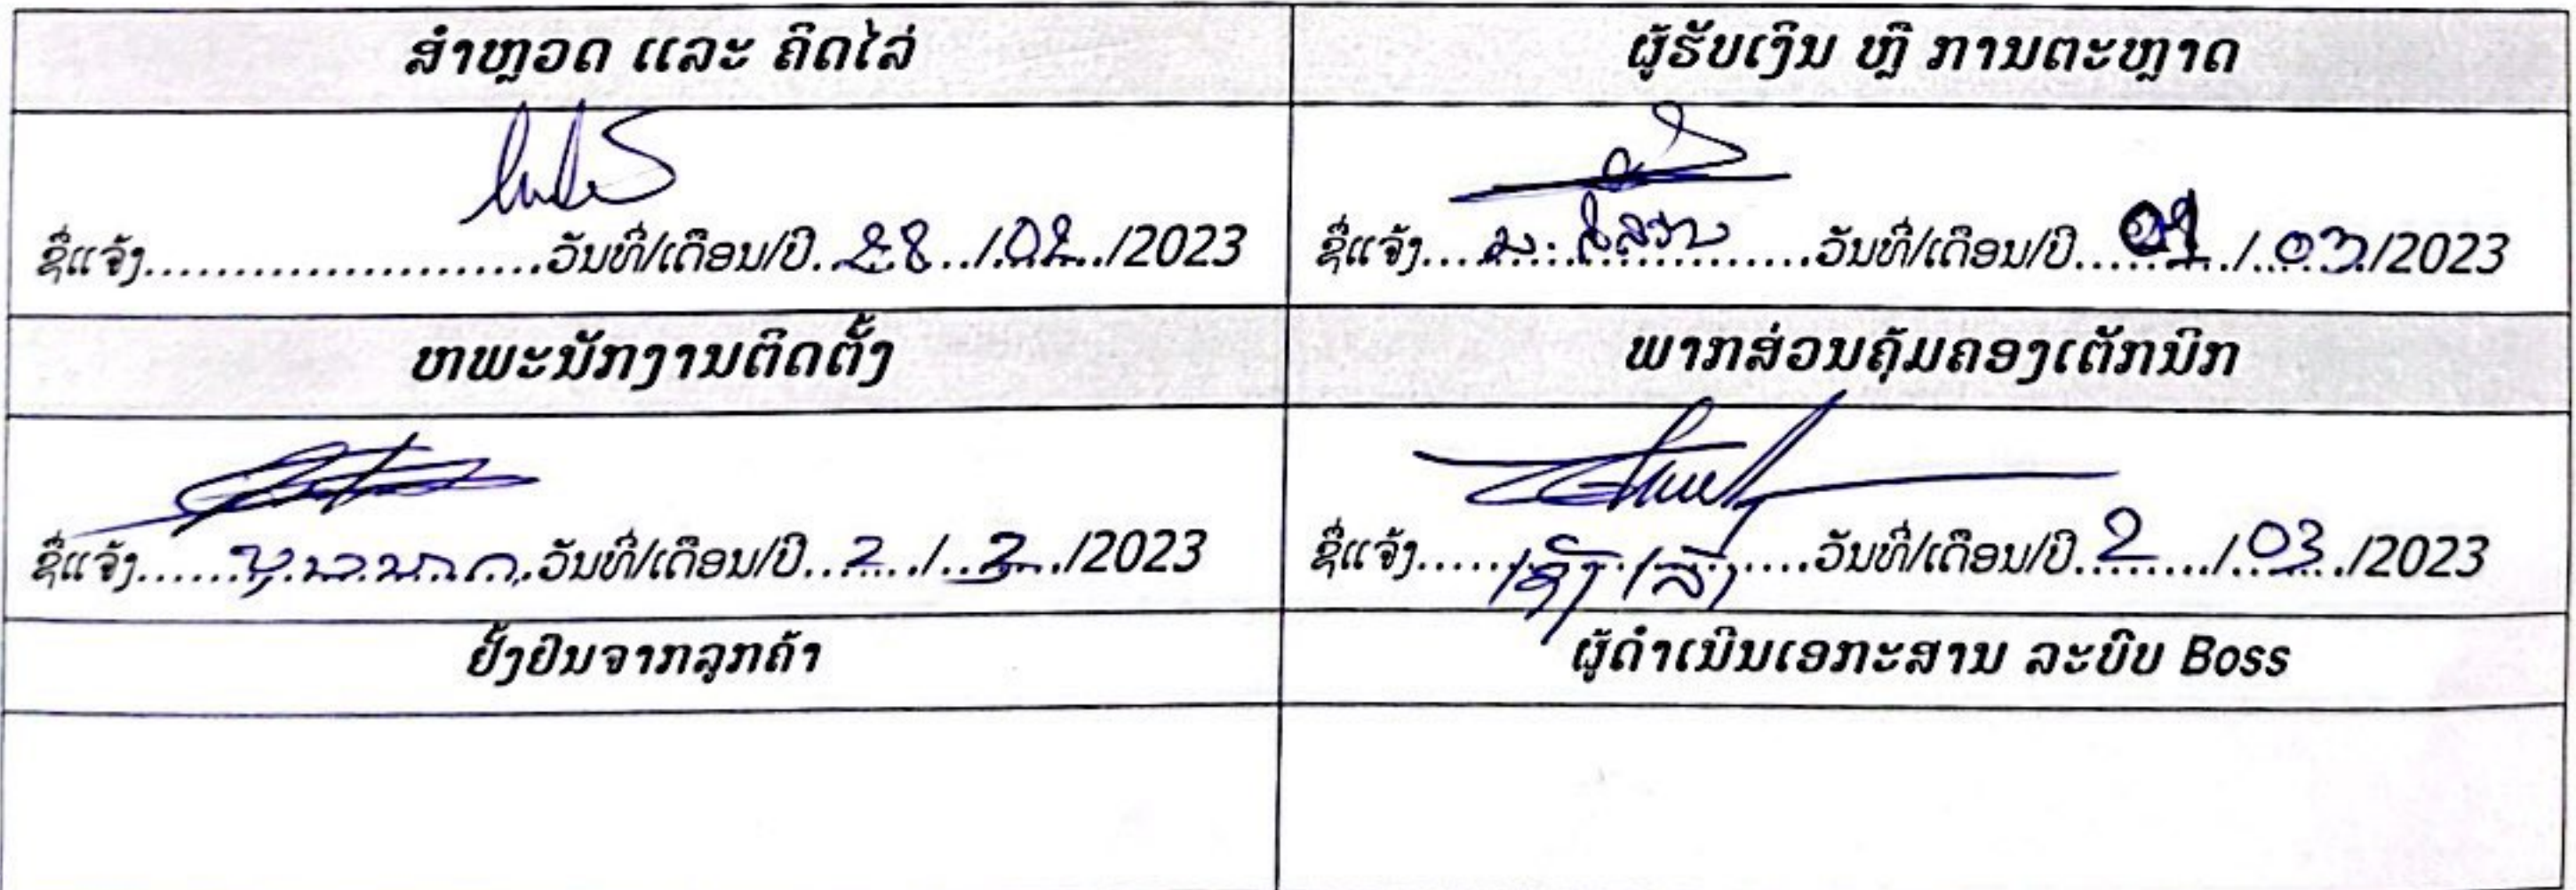 ສຳຫຼວດ ແລະ ຄິດໄລ່
ຜູ້ຮັບເງິນ ຫຼື ການຕະຫຼາດ
ຊື່ແຈ້ງ.......................ວັນທີ່/ເດືອນ/ປີ..28../.02../2023
ຊື່ແຈ້ງ.......................ວັນທີ່/ເດືອນ/ປີ....01..../..03./2023
ຫພະນັກງານຕິດຕັ້ງ
ພາກສ່ວນຄຸ້ມຄອງເຕັກນິກ
ຊື່ແຈ້ງ.......................ວັນທີ່/ເດືອນ/ປີ..2.../..3.../2023
ຊື່ແຈ້ງ.......................ວັນທີ່/ເດືອນ/ປີ..2...../..03../2023
ຢັ້ງຢືນຈາກລູກຄ້າ
ຜູ້ດຳເນີນເອກະສານ ລະບົບ Boss